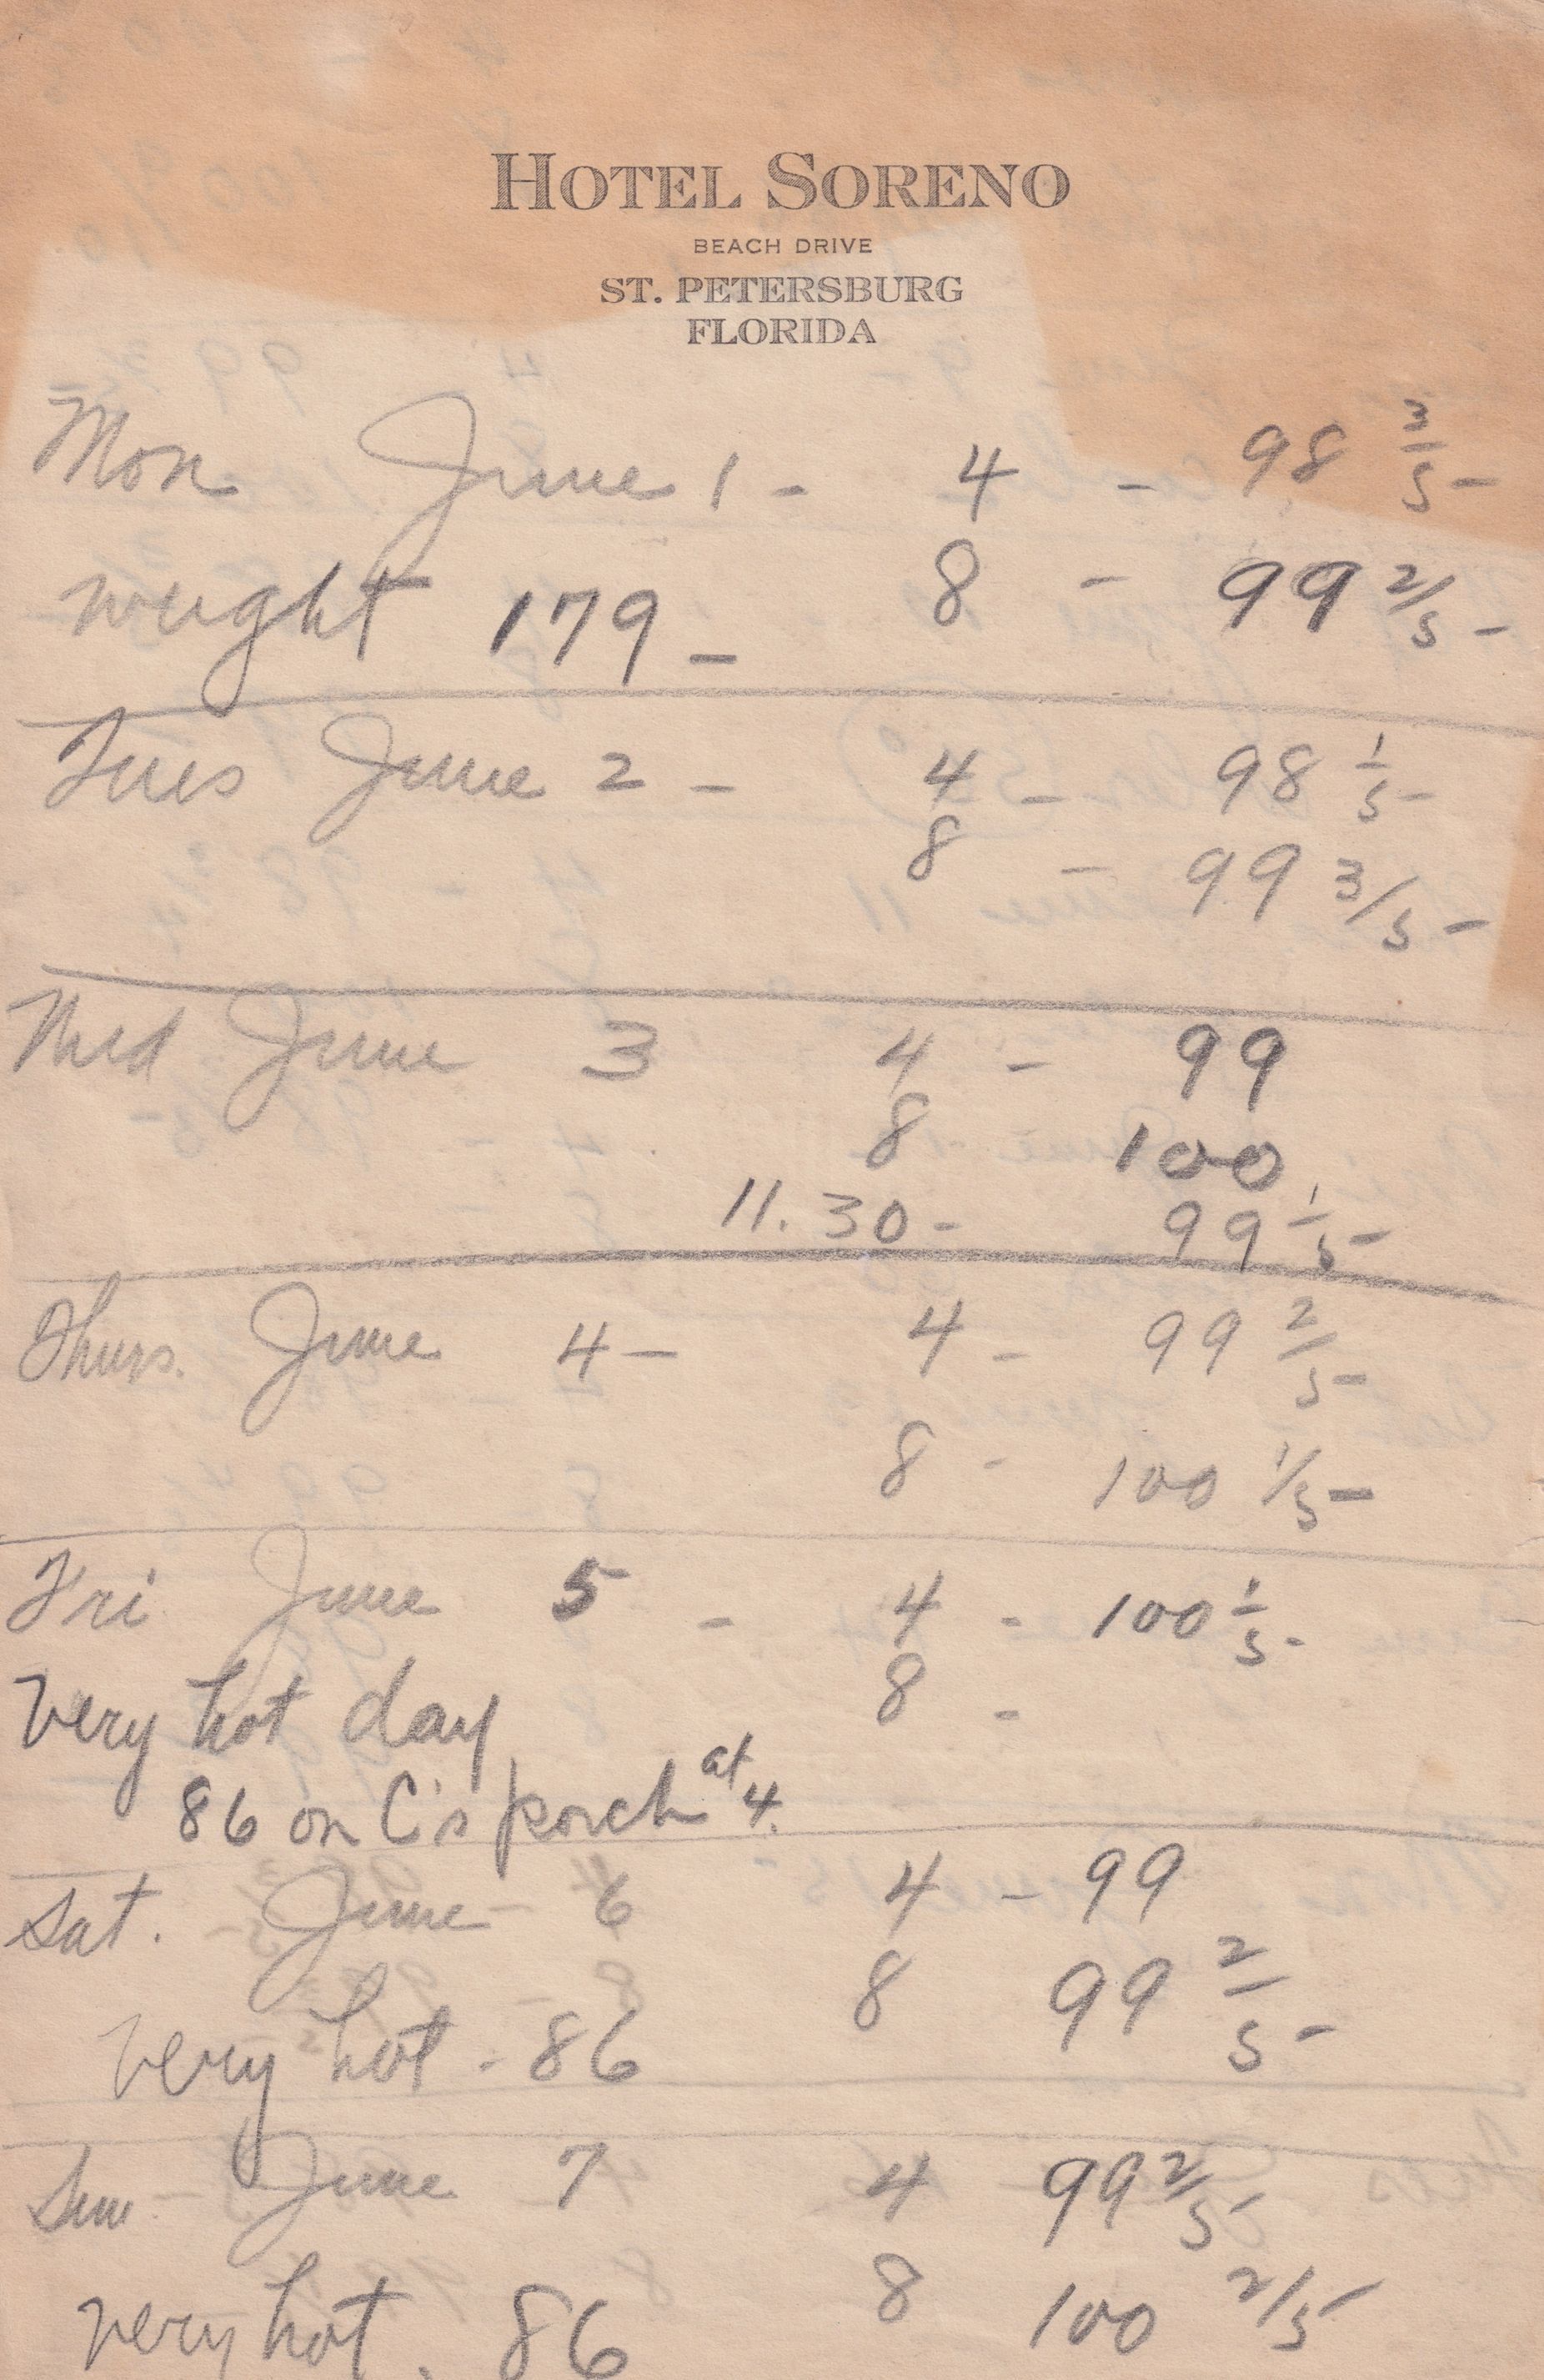 HOTEL SORENO
BEACH DRIVE
ST. PETERSBURG
FLORIDA
Mon June 1 - 4 - 98 3/5 -
weight 179 - 8 - 99 2/5 -
Tues June 2 - 4 - 98 1/5 -
8 - 99 3/5 -
Wed June 3 4 - 99
8 100
11.30 - 99 1/5 -
Thurs. June 4 - 4 - 99 2/5 -
8 - 100 1/5 -
Fri June 5 - 4 - 100 1/5 -
8 -
Very hot day
86 on C's porch at 4.
Sat. June - 6 4 - 99
8 99 2/5 -
very hot - 86
Sun. June 7 4 99 2/5
8 100 2/5
very hot. 86